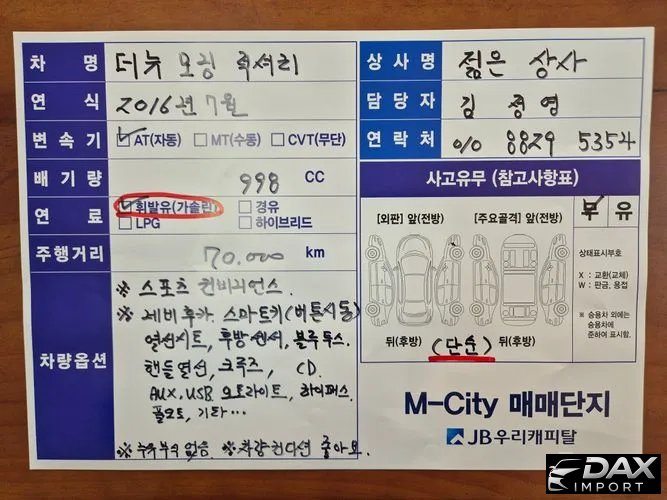 차 명 더뉴 모닝 럭셔리
연 식 2016년 7월
변속기 ☑AT(자동) ☐MT(수동) ☐CVT(무단)
배기량 998 CC
연 료 ☑휘발유(가솔린) ☐경유
☐LPG ☐하이브리드
주행거리 70.000 km
차량옵션
※ 스포츠 컨비니언스.
※ 네비 후카. 스마트키(버튼시동)
열선시트, 후방센서, 블루투스.
핸들열선, 크루즈, CD.
AUX, USB 오토라이트, 하이패스.
풀오토, 기타...
※ 누유 부식 없음. ※ 차량컨디션 좋아요.
상 사 명 젊은 상사
담 당 자 김 정영
연 락 처 010 8829 5354
사고유무 (참고사항표)
[외판] 앞(전방) [주요골격] 앞(전방)
뒤(후방) (단순) 뒤(후방)
무 유
상태표시부호
X : 교환(교체)
W : 판금, 용접
※ 승용차 외에는
승용차에
준하여 표시함.
M-City 매매단지
JB우리캐피탈
DAX
IMPORT